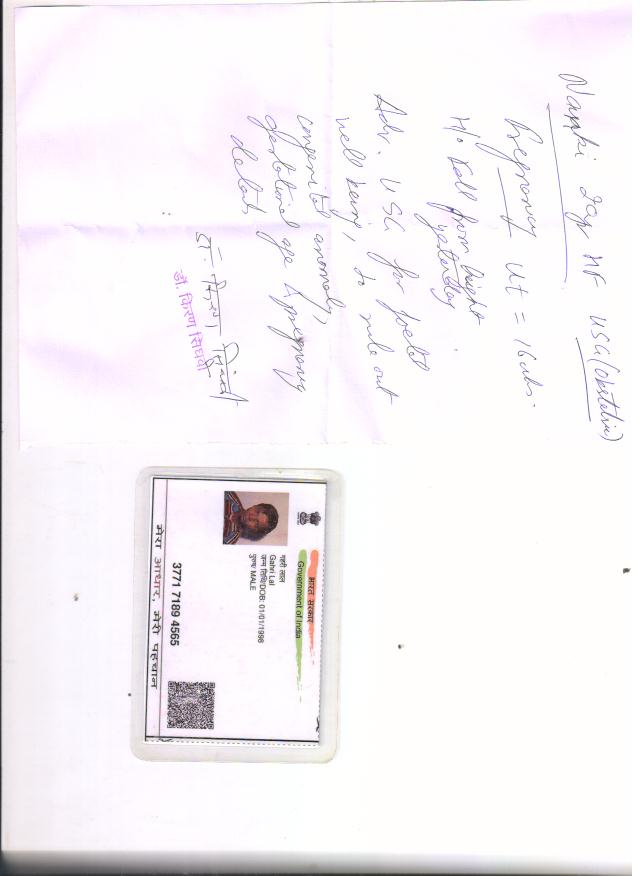 20y HF USG (Obstetric)
Pregnancy Ut = 16wks.
H/o Fall from height
yesterday
Adv. USG for foetal
well being, to rule out
congenital anomaly,
gestational age & pregnancy
details
डॉ. किरण सिंघवी
भारत सरकार
Government of India
गहरी लाल
Gahri Lal
जन्म तिथि/DOB: 01/01/1998
पुरुष/ MALE
3771 7189 4565
मेरा आधार, मेरी पहचान